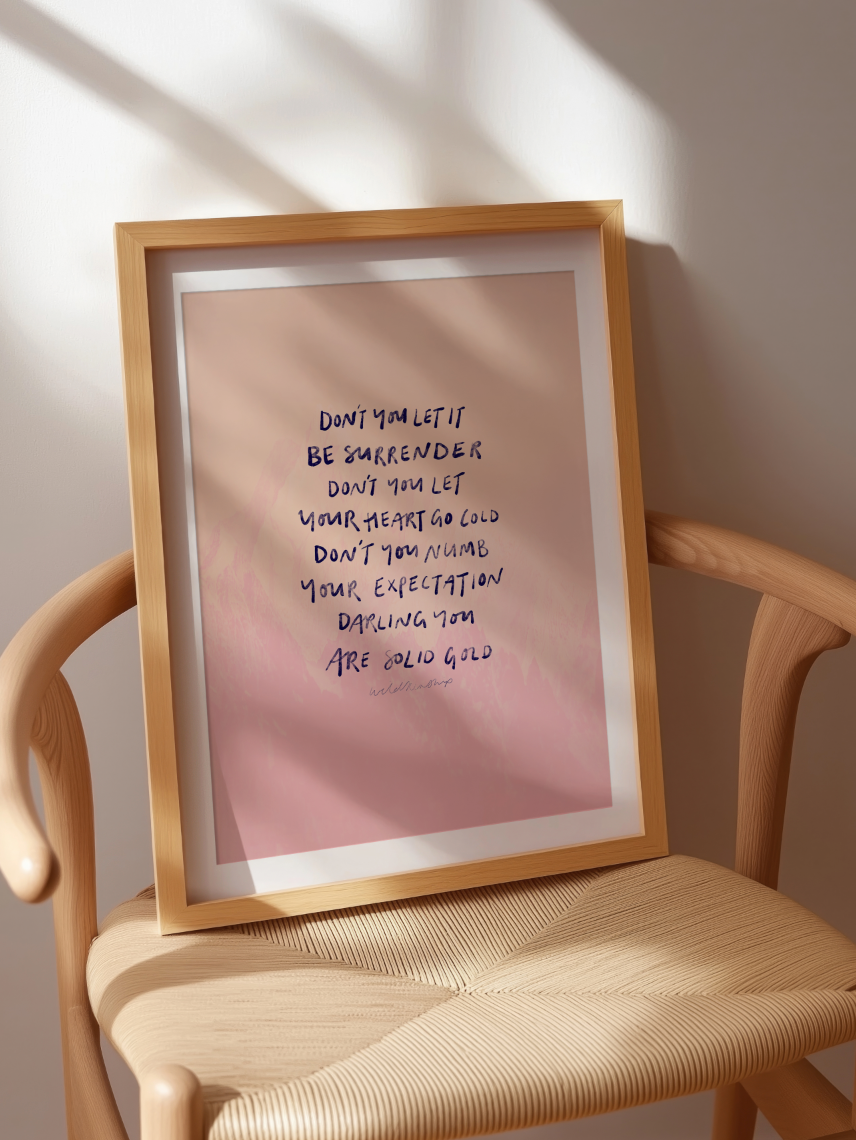 DON'T YOU LET IT
BE SURRENDER
DON'T YOU LET
YOUR HEART GO COLD
DON'T YOU NUMB
YOUR EXPECTATION
DARLING YOU
ARE SOLID GOLD